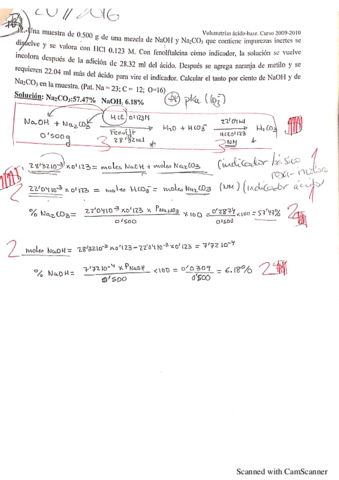 20/11/2016
12.-Una muestra de 0.500 g de una mezcla de NaOH y Na2CO3 que contiene impurezas inertes se
Volumetrías ácido-base. Curso 2009-2010
disuelve y se valora con HCl 0.123 M. Con fenolftaleína como indicador, la solución se vuelve
incolora después de la adición de 28.32 ml del ácido. Después se agrega naranja de metilo y se
requieren 22.04 ml más del ácido para vire el indicador. Calcular el tanto por ciento de NaOH y de
Na2CO3 en la muestra. (Pat. Na = 23; C = 12; O=16)
Solución: Na2CO3:57.47% NaOH, 6.18%
pka
NaOH + Na2CO3 HCl 0'123M H2O + HCO3- 22'04ml H2CO3
0'500g Fenolft 28'32ml HCl 0'123 NM
3 3
28'32·10-3 x 0'123 = moles NaOH + moles Na2CO3 (indicador básico
22'04·10-3 x 0'123 = moles HCO3- = moles Na2CO3 (NM) (indicador ácido)
% Na2CO3 = 22'04·10-3 x 0'123 x PNa2CO3 / 0'500 x 100 = 0'2874 / 0'500 x 100 = 57'47% 2
2 moles NaOH = 28'32·10-3 x 0'123 - 22'04·10-3 x 0'123 = 7'72·10-4
% NaOH = 7'72·10-4 x PNaOH / 0'500 x 100 = 0'0309 / 0'500 = 6.18% 2
Scanned with CamScanner